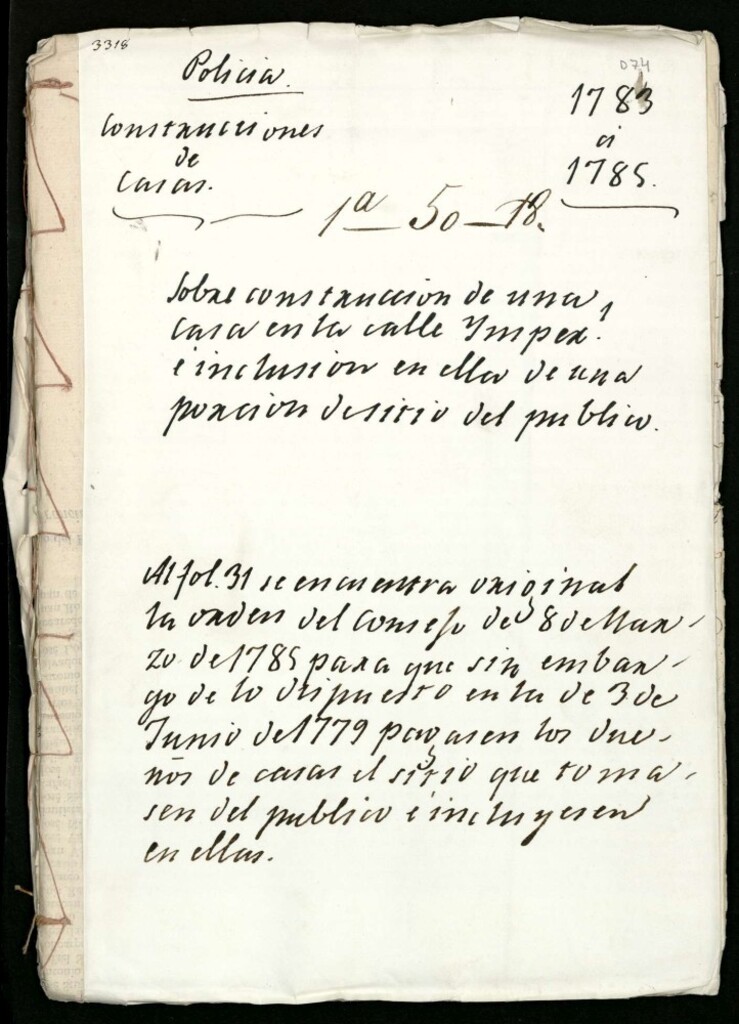 3318
Policia.
074
Construcciones
de
Casas.
1783
á
1785.
1ª 50-18.
Sobre construccion de una
casa en la calle Imper.l
é inclusion en ella de una
porcion de sitio del publico.
Al fol. 31 se encuentra original
la orden del Consejo de 8 de Mar-
zo de 1785 para que sin embar-
go de lo dispuesto en la de 3 de
Junio de 1779 pagasen los due-
ños de casas el sitio que toma-
sen del publico é incluyesen
en ellas.